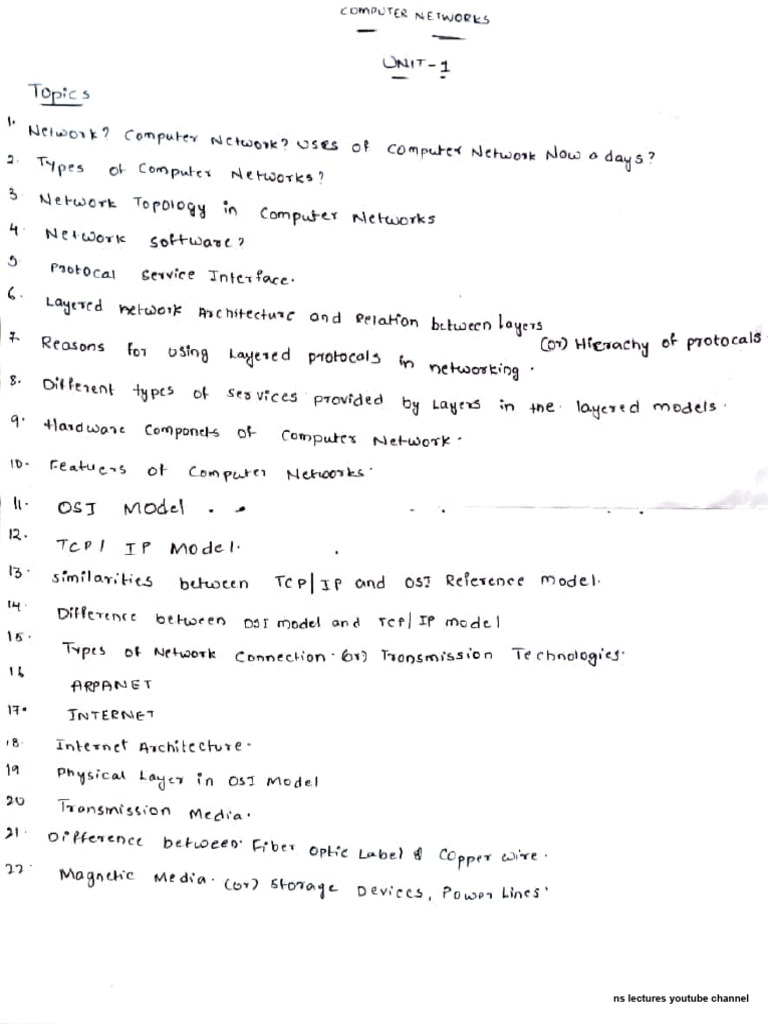 COMPUTER NETWORKS
UNIT-1
Topics
1. Network? Computer Network? Uses of Computer Network Now a days?
2. Types of Computer Networks?
3. Network Topology in Computer Networks
4. Network Software?
5. Protocal Service Interface.
6. Layered network Architecture and Relation between layers
(or) Hierachy of protocals
7. Reasons for using Layered protocals in networking.
8. Different types of services provided by Layers in the layered models.
9. Hardware Componets of Computer Network.
10. Featuers of Computer Networks.
11. OSI Model.
12. TCP/IP Model.
13. Similarities between TCP/IP and OSI Reference model.
14. Difference between OSI model and TCP/IP model
15. Types of Network Connection. (or) Transmission Technologies.
16 ARPANET
17. INTERNET
18. Internet Architecture.
19 Physical Layer in OSI Model
20 Transmission Media.
21. Difference between Fiber Optic Label & Copper wire.
22. Magnetic Media. (or) Storage Devices, Power Lines.
ns lectures youtube channel